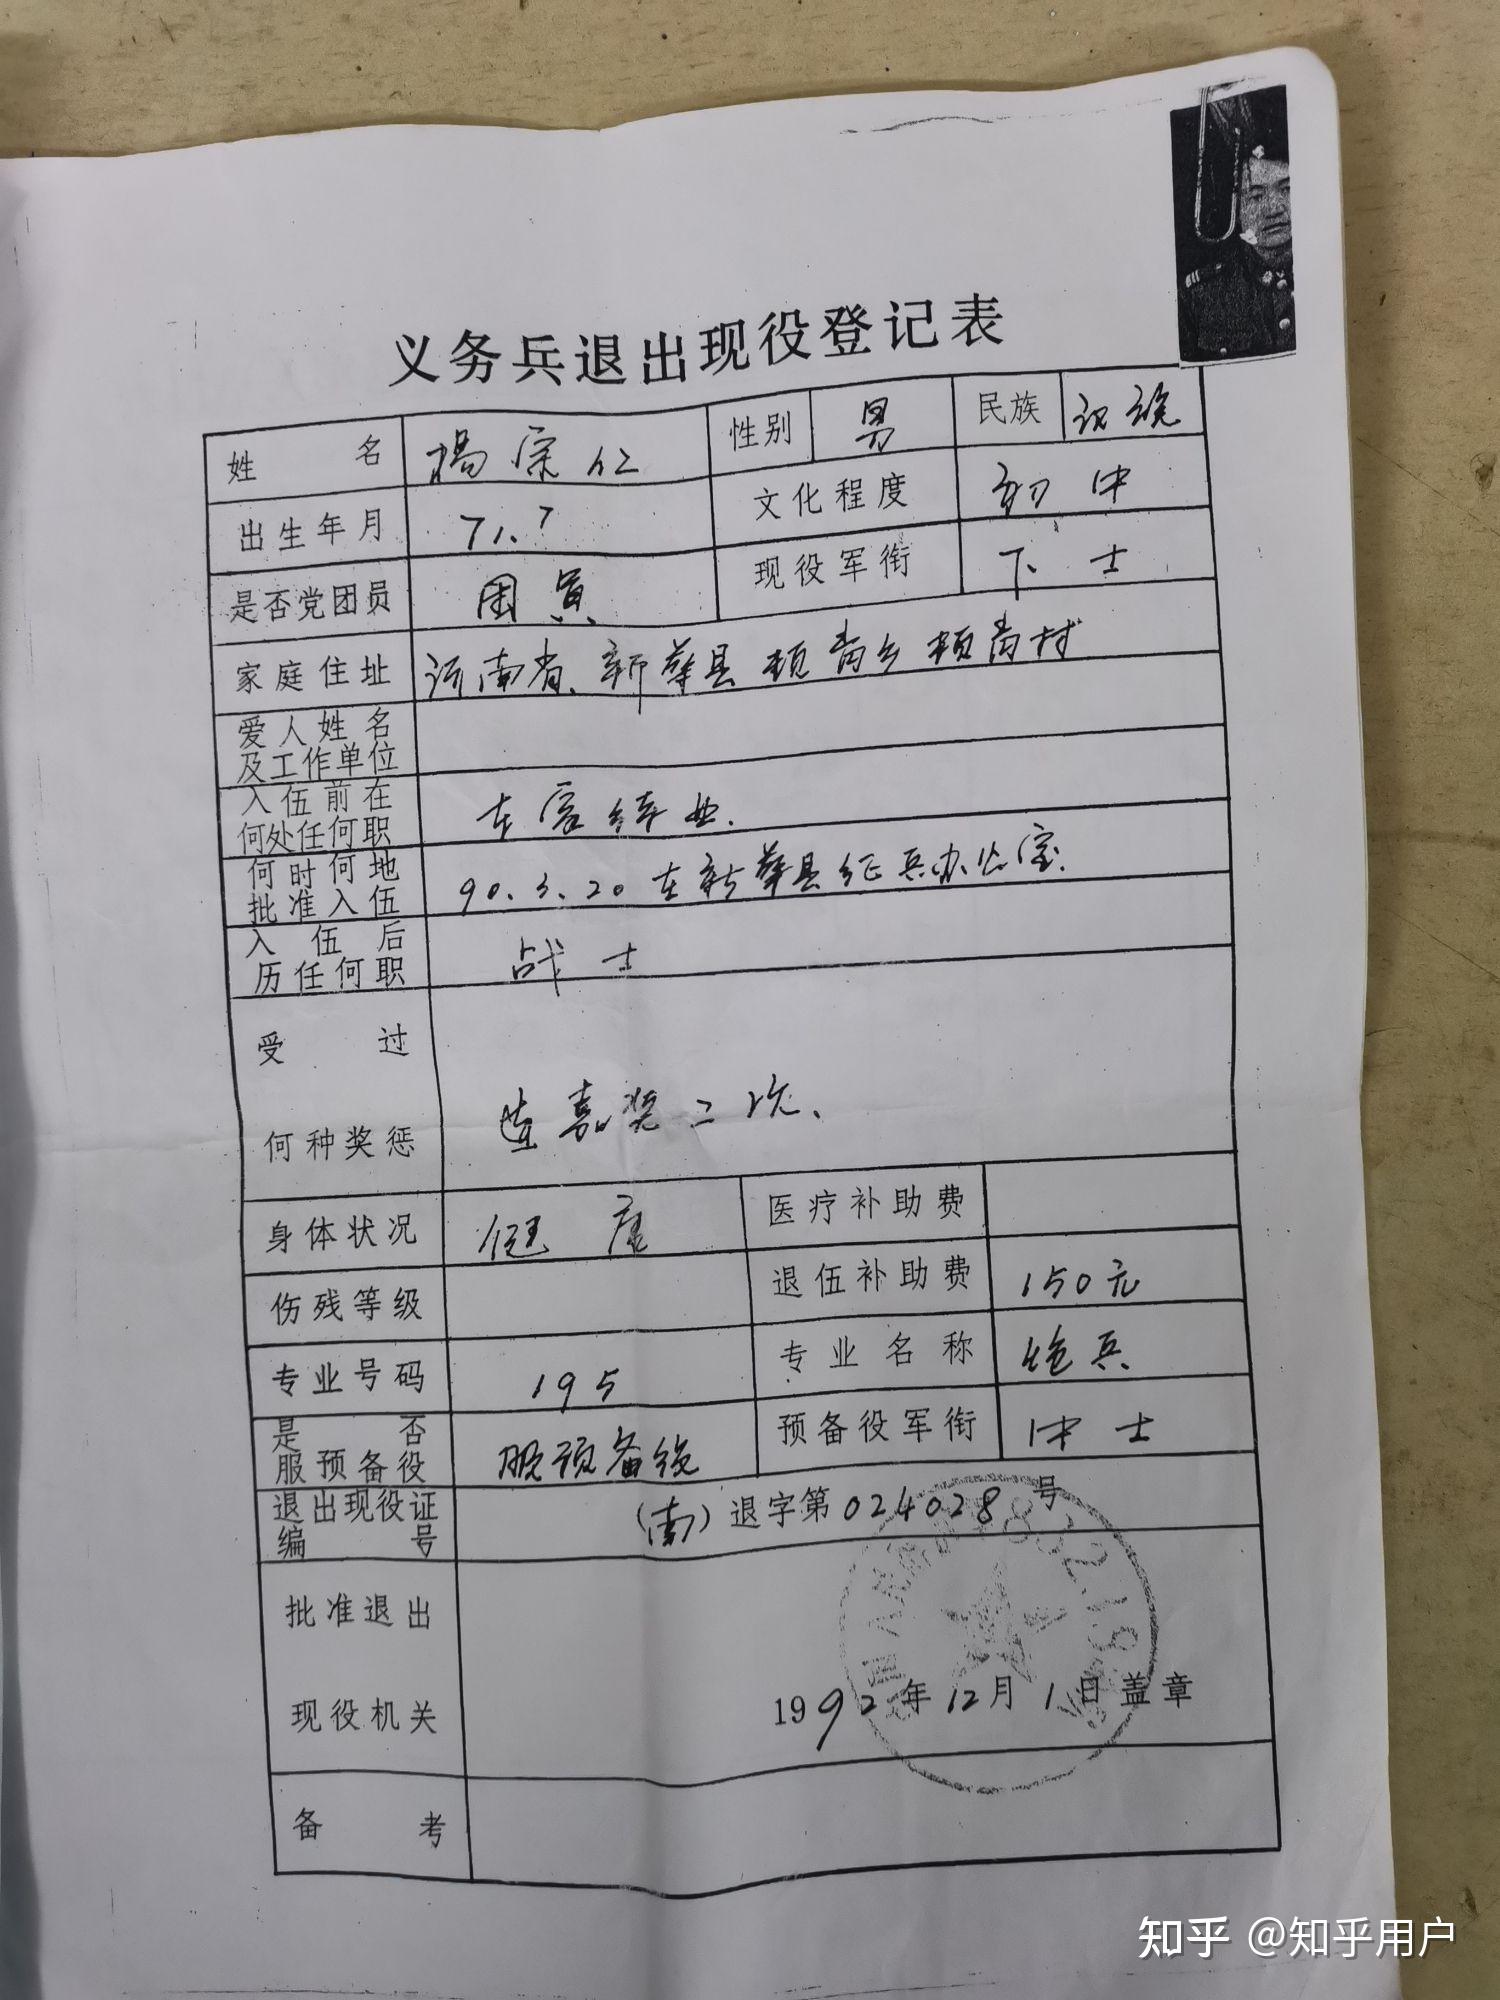 义务兵退出现役登记表
姓名 楊宗仁 性别 男 民族 汉族
出生年月 71.7 文化程度 初中
是否党团员 团员 现役军衔 下士
家庭住址 河南省、新蔡县顿岗乡顿岗村
爱人姓名
及工作单位
入伍前在
何处任何职 在家待业.
何时何地
批准入伍 90.3.20 在新蔡县征兵办公室.
入伍后
历任何职 战士
受过
何种奖惩 连嘉奖二次、
身体状况 健康 医疗补助费
伤残等级 退伍补助费 150元
专业号码 195 专业名称 炮兵
是否
服预备役 服预备役 预备役军衔 中士
退出现役证
编号 (南)退字第024028号
批准退出
现役机关
1992年12月1日盖章
备考
知乎 @知乎用户